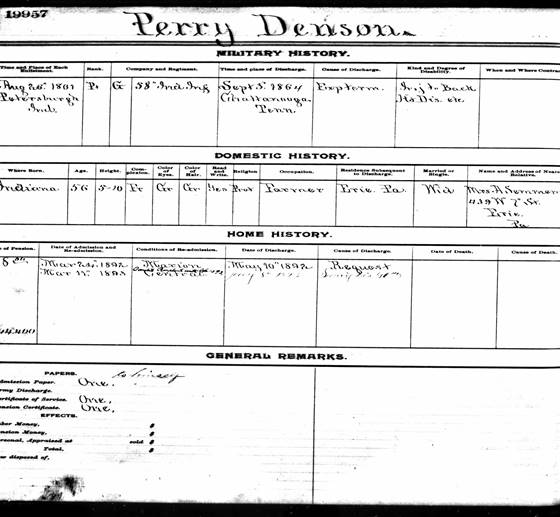 19957
Perry Denson.
MILITARY HISTORY.
Time and Place of Each Enlistment. Rank. Company and Regiment. Time and place of Discharge. Cause of Discharge. Kind and Degree of Disability. When and Where Contrac
Aug 26" 1861 Pt G 58" Ind Inf Sept 5" 1864 Exp term. Inj to Back
Petersburgh Chattanooga Hs Dis. etc.
Ind. Tenn.
DOMESTIC HISTORY.
Where Born. Age. Height. Complexion. Color of Eyes. Color of Hair. Read and Write. Religion Occupation. Residence Subsequent to Discharge. Married or Single. Name and Address of Neares Relative.
Indiana 56 5-10 Fr Gr Gr Yes Prot Farmer Erie Pa. Wid Mrs A Sommer
439 W 7" St.
Erie
Pa
HOME HISTORY.
of Pension. Date of Admission and Re-admission. Conditions of Re-admission. Date of Discharge. Cause of Discharge. Date of Death. Cause of Death.
Mar 24" 1892 Marion May 10" 1892 Request
Central
GENERAL REMARKS.
PAPERS. to himself
dmission Paper. One.
rmy Discharge.
ertificate of Service. One,
ension Certificate. One,
EFFECTS.
ber Money, $
ension Money, $
ersonal, Appraised at sold $
Total, $
ow disposed of.